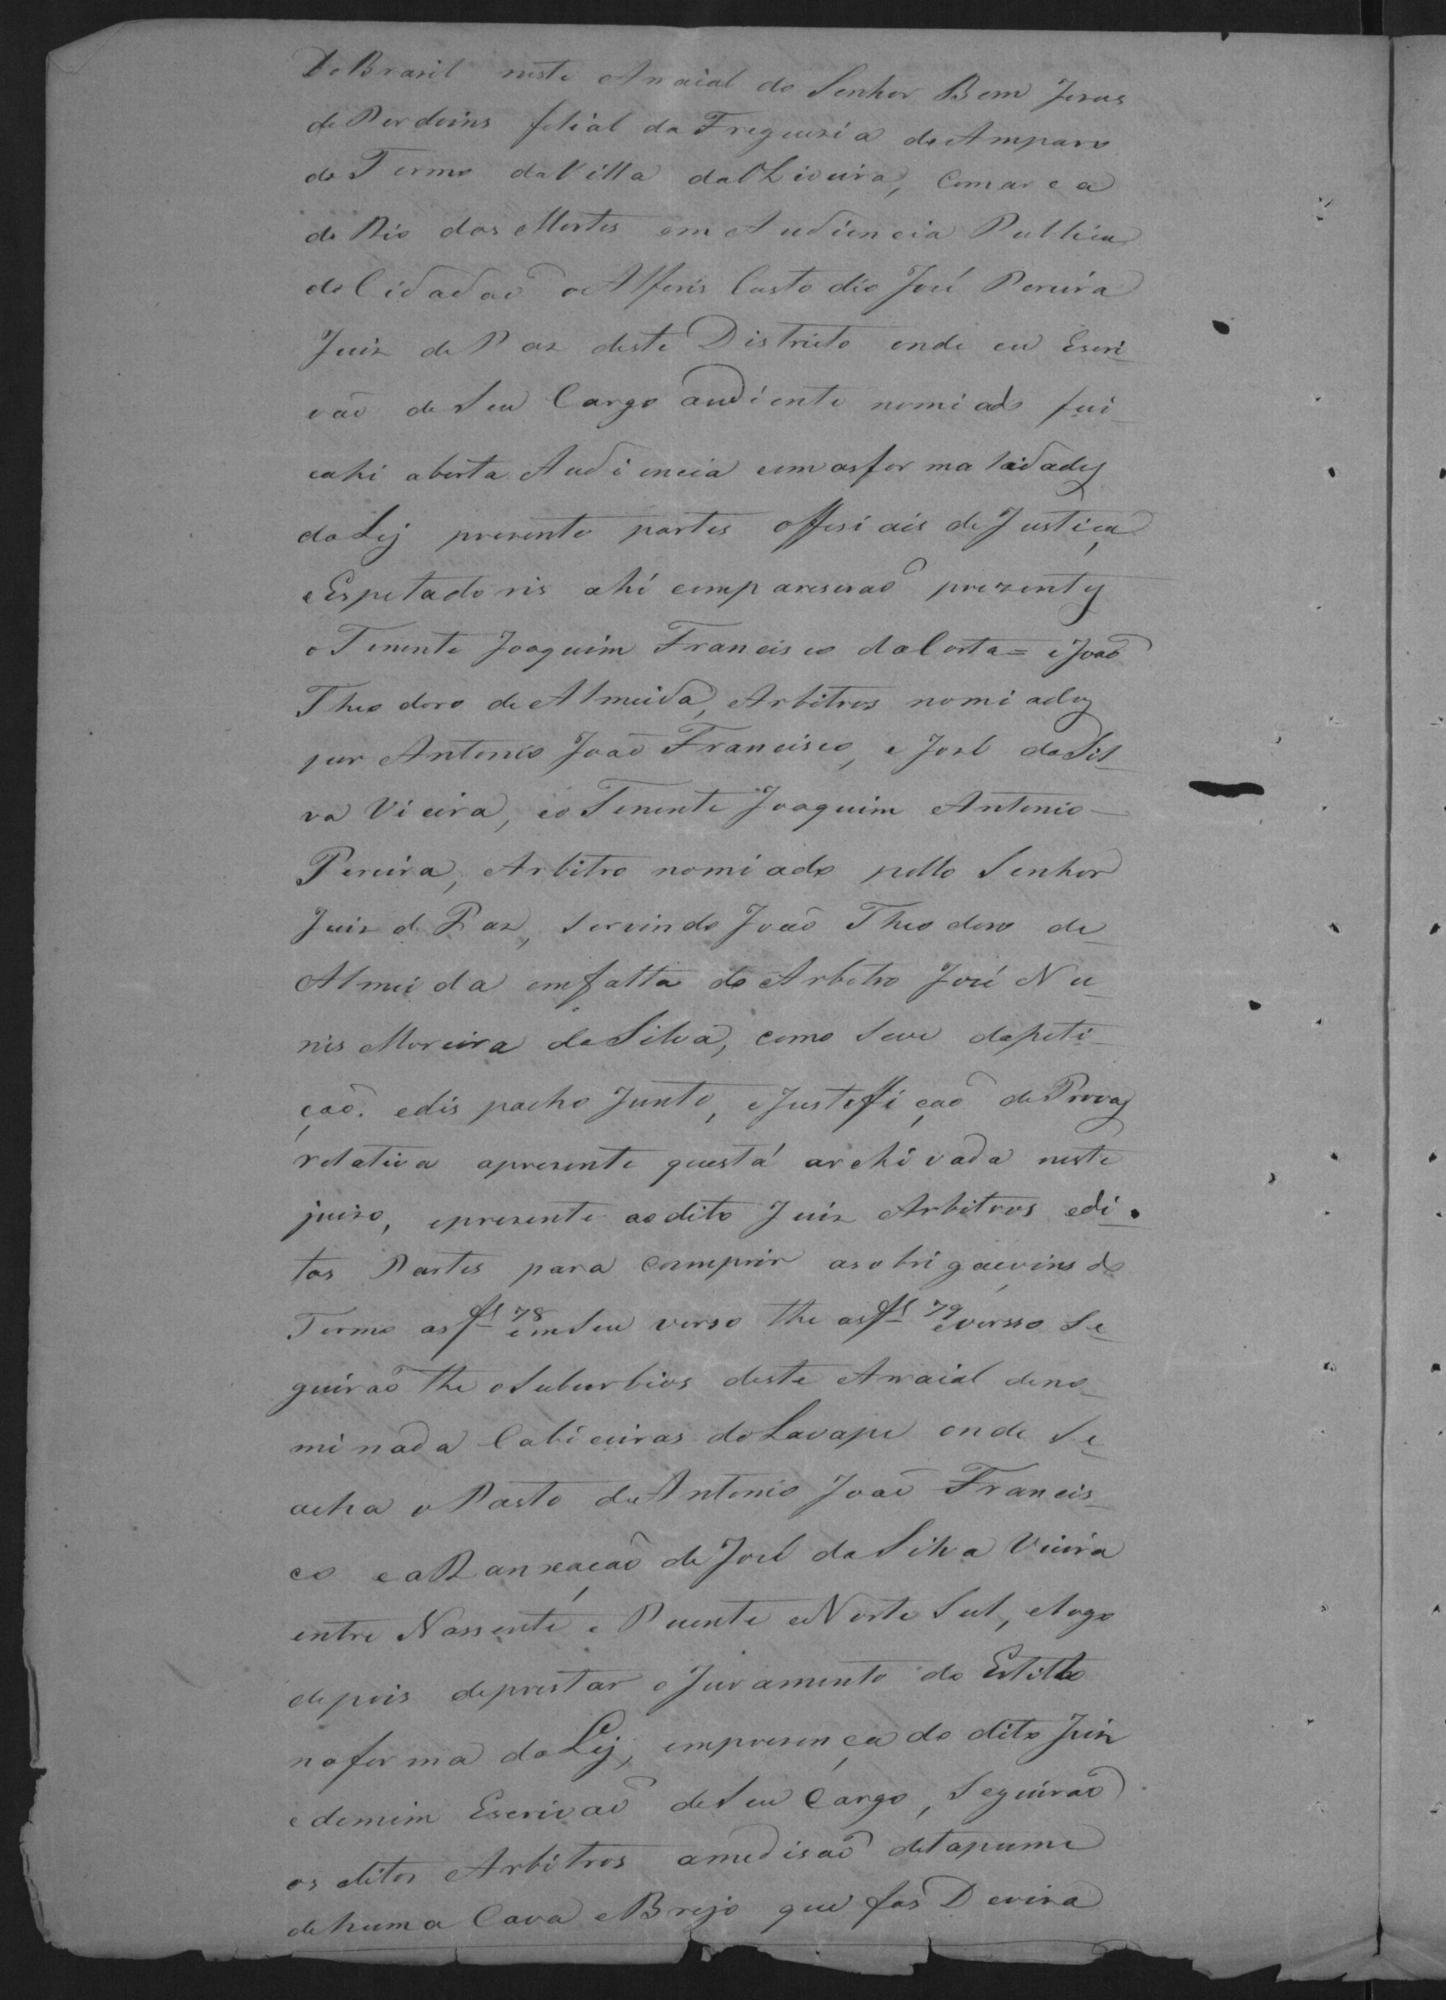 Do Brasil neste Arraial do Senhor Bom Jesus
de Perdoins felial da Freguezia do Amparo
do Termo da Villa da Oliveira, Comarca
do Rio das Mortes em Audiencia Publica
do Cidadaõ o Alferis Custodio José Pereira
Juiz de Paz deste Districto onde eu Escri-
vaõ de Seu Cargo audiente nomiado fui
eahi aberta Audiencia com as formalidades
da Ley prezente partes offisiais de Justiça
e Espetadoris ahi compareseraõ prezentes
o Tenente Joaquim Francisco da Costa = e Joaõ
Theodoro de Almeida, Arbitros nomiados
por Antonio Joaõ Francisco, e José da Sil-
va Vieira, eo Tenente Joaquim Antonio
Pereira, Arbitro nomiado pello Senhor
Juiz d Paz, Servindo Joaõ Theodoro de
Almeida emfalta do Arbitro José Nu-
nis Moreira da Silva, como seve dapeti-
çaõ. edispacho Junto, eJusteffiçaõ de Provas
relativa aprezente questá archivada neste
juizo, eprezente aodito Juiz Arbitros edi-
tas Partes para comprir asobrigaçoins do
Termo as fls 78 eem Seu verso the as fls 79 eversso Se-
guiraõ the oSuburbios deste Arraial deno-
minada Cabiceiras do Lavape onde Se
acha o Pasto de Antonio Joaõ Francis-
co e a Ranxaçaõ de José da Silva Vieira
entre Nassente e Puente e Norte Sul, elogo
depois deprestar o Juramento do Estillo
naforma da Ley, emprezença do dito Juiz
edemim Escrivaõ deSeu Cargo, Seguiraõ
os ditos Arbitros amedisaõ detapume
dehuma Cava eBrejo que fas Deviza